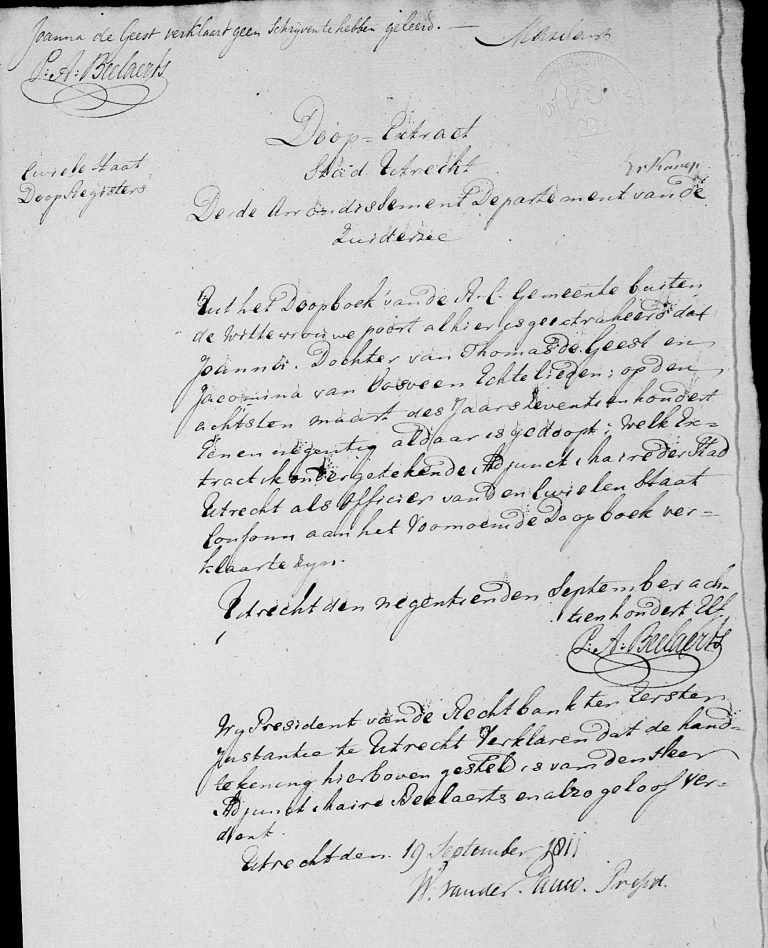 Joanna de Geest verklaart geen Schrijven te hebben geleerd. —
P: A: Beelaerts
Doop = Extract
Stad Utrecht
Civiele Staat
Doop Registers
Derde Arrondissement Departement van de
Zuiderzee
Uit het Doopboek van de R. C. Gemeente buiten
de Wittevrouwe poort alhier is geextraheerd dat
Joanna. Dochter van Thomas de Geest en
Jacomina van Oosveen Echtelieden: op den
achtsten maart des Jaars Seventienhondert
Een en negentig aldaar is gedoopt; welk Ex-
tract ik ondergetekende Adjunct Maire der Stad
Utrecht als Officier van den Civielen Staat
Conform aan het Voornoemde Doopboek ver-
klaar te zyn.
Utrecht den negentienden September ach-
tienhondert Elf
P: A: Beelaerts
Wy President van de Rechtbank ter Eerster
Instantie te Utrecht Verklaren dat de hand-
tekening hierboven gesteld is van den Heer
Adjunct Maire Beelaerts en alzo geloof ver-
dient.
Utrecht den 19 September 1811
W. van der Presid.